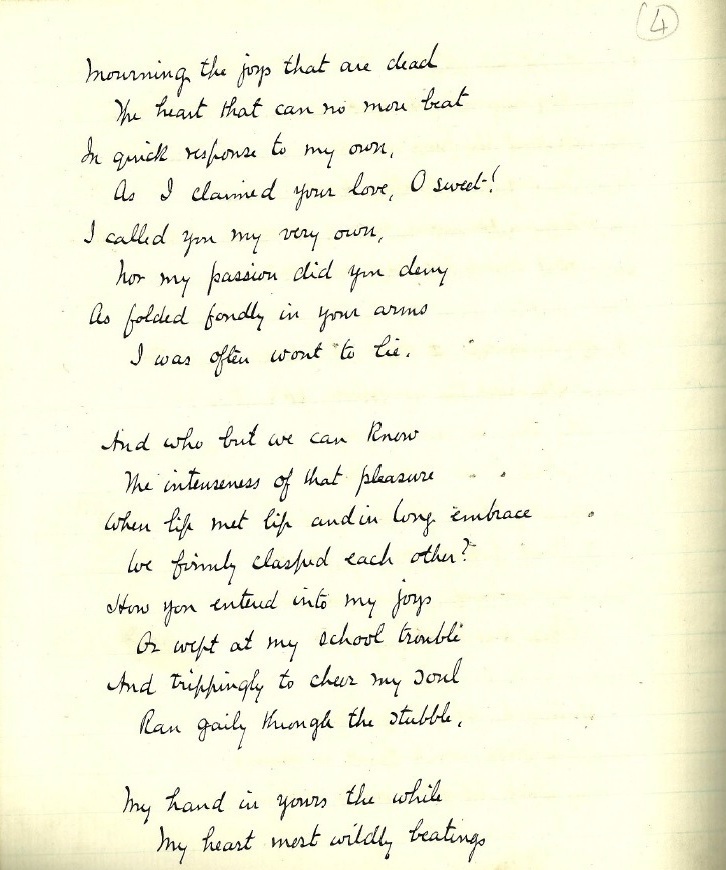 4
Mourning the joys that are dead
The heart that can no more beat
In quick response to my own,
As I claimed your love, O sweet!
I called you my very own,
Nor my passion did you deny
As folded fondly in your arms
I was often wont to lie.
And who but we can know
The intenseness of that pleasure
When lip met lip and in long embrace
We firmly clasped each other?
How you entered into my joys
Or wept at my school trouble
And trippingly to cheer my soul
Ran gaily through the stubble,
My hand in yours the while
My heart most wildly beatings